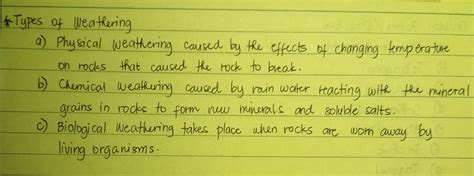 * Types of Weathering
a) Physical Weathering caused by the effects of changing temperature
on rocks that caused the rock to break.
b) Chemical weathering caused by rain water reacting with the mineral
grains in rocks to form new minerals and soluble salts.
c) Biological Weathering takes place when rocks are worn away by
living organisms.